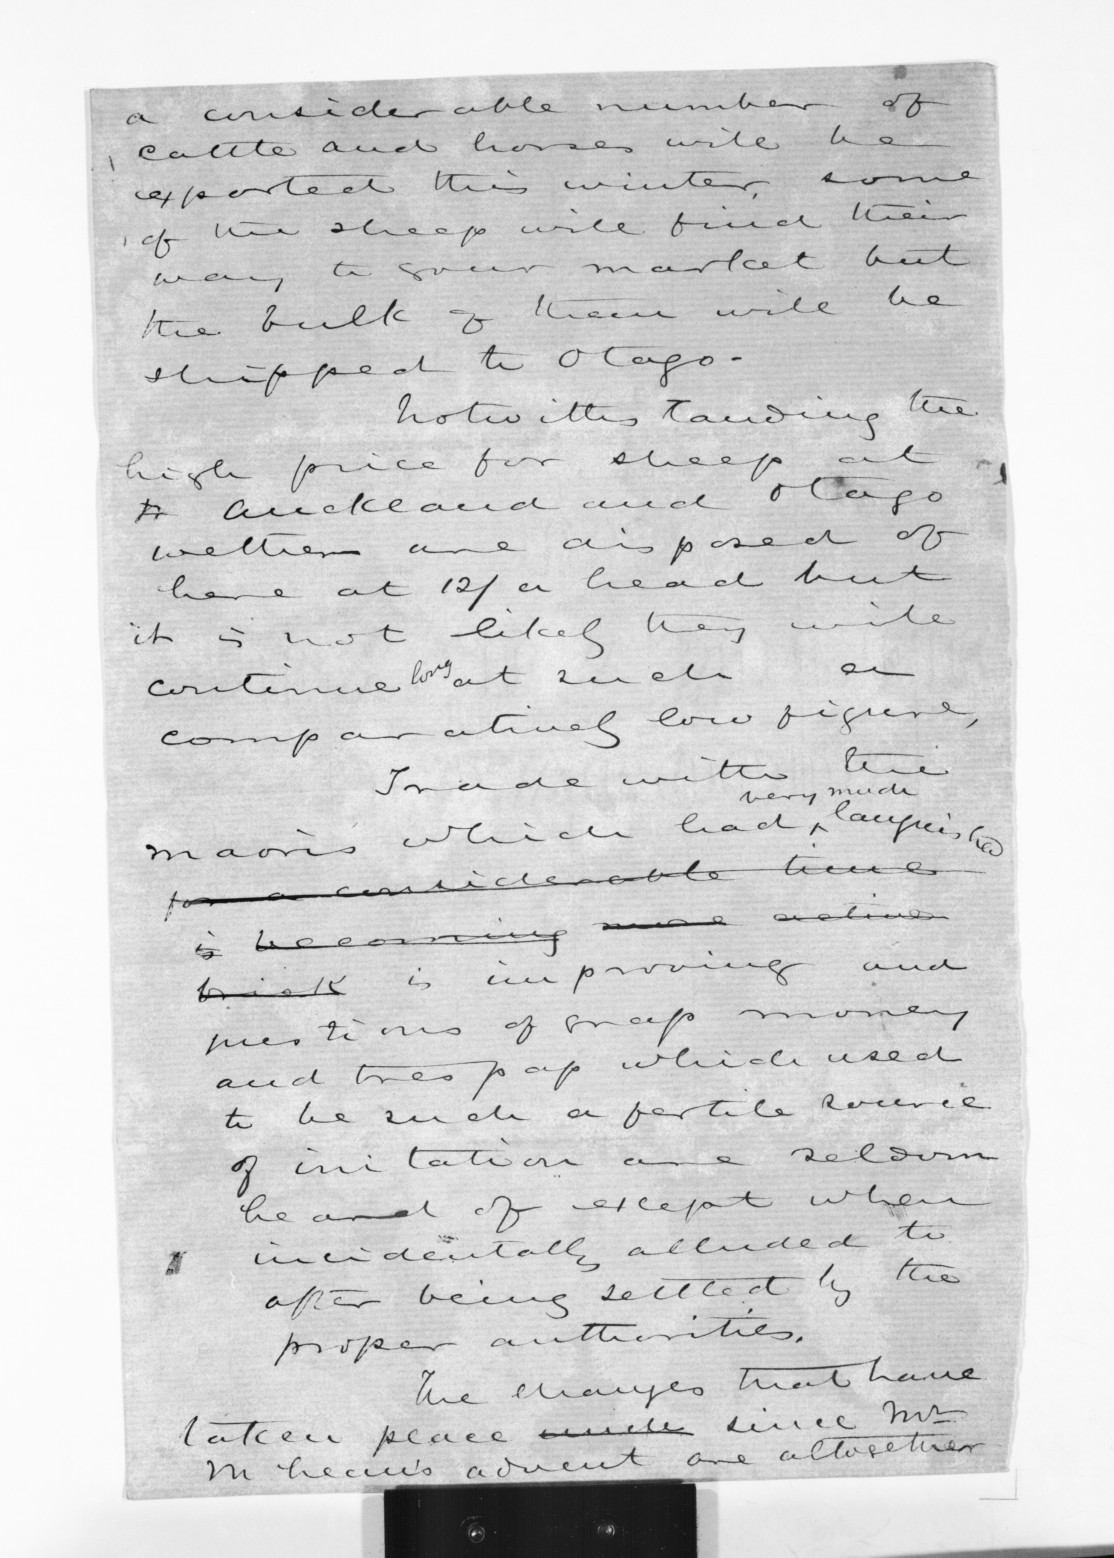 a considerable number of
cattle and horses will be
exported this winter, some
of the sheep will find their
way to your market but
the bulk of them will be
shipped to Otago-
Notwithstanding the
high price for sheep at
Auckland and Otago
wethers are disposed of
here at 12/ a head but
it is not likely they will
continue long at such a
comparatively low figure,
Trade with the
very much
maoris which had languished
for a considerable time
is becoming more active
brisk is improving and
questions of grass money
and trespass which used
to be such a fertile source
of irritation are seldom
heard of except when
incidentally alluded to
after being settled by the
proper authorities.
The changes that have
taken place under since Mr
McLean's advent are altogether